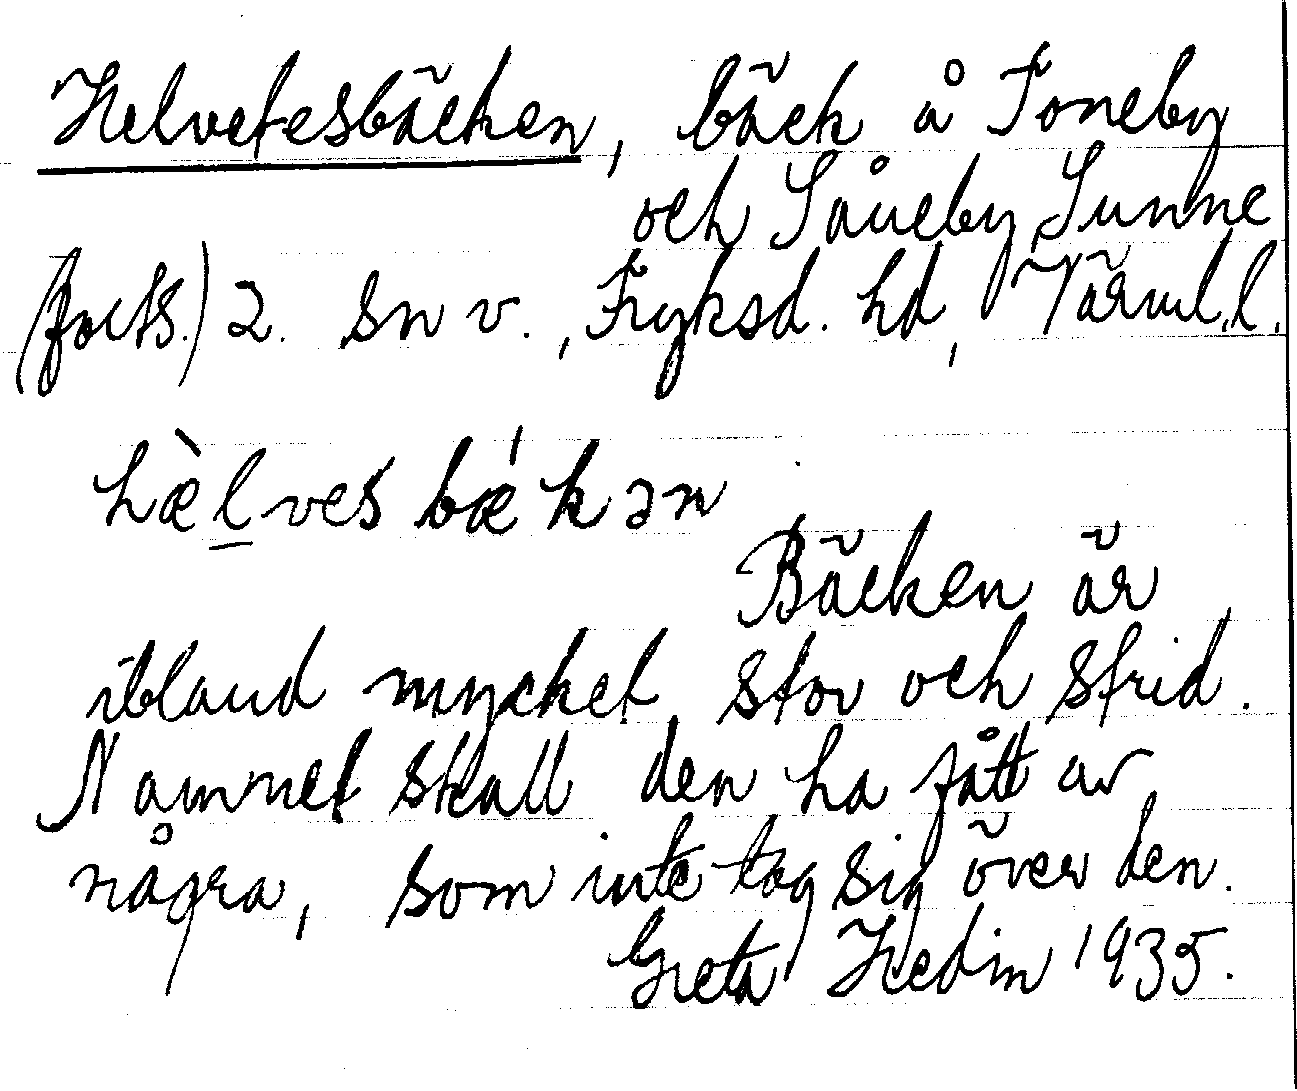 Helvetesbäcken, bäck å Toneby
och Såneby Sunne
(forts.) 2. sn v., Fryksd. hd, Värml. l.
hæ̀lvesbæ´kən
Bäcken är
ibland mycket stor och strid.
Namnet skall den ha fått av
några, som inte tog sig över den.
Greta Hedin 1935.